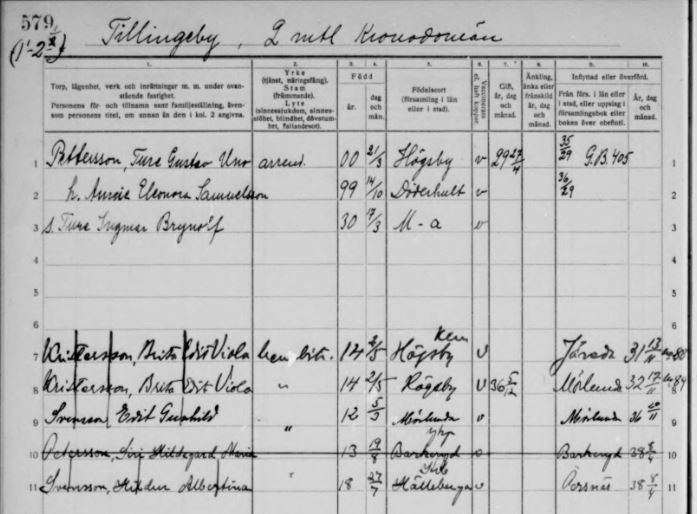 579
Tillingeby, 2 mtl Kronodomän
1. 2. 3. 4. 5. 6. 7. 8. 9. 10.
Torp, lägenhet, verk och inrättningar m. m. under ovanstående fastighet.
Personens för- och tillnamn samt familjeställning, ävensom personens titel, om annan än den i kol. 2 angivna.
Yrke
(tjänst, näringsfång).
Stam
(främmande).
Lyte
(sinnessjukdom, sinnesslöhet, blindhet, dövstumhet, fallandesot).
Född
år.
dag och mån.
Födelseort
(församling i län eller i stad).
Gift, år, dag och månad.
Änkling, änka eller frånskild år, dag och månad.
Inflyttad eller överförd.
Från förs. i län eller i stad, eller uppslag i församlingsbok eller boken över obefintl.
År, dag och månad.
1 Pettersson, Ture Gustav Uno arrend. 00 21/3 Högsby v 29 27/4 35/29 G.B. 405 1
2 h. Eleonora Samuelsson 99 14/10 Döderhult v 36/29 2
3 s. Ture Ingmar Brynolf 30 17/3 M-a v 3
4 4
5 5
6 6
7 Kristersson, Brita Edit Viola hembitr. 14 2/5 Högsby v Järeda 31 13/11 7
8 Kristersson, Brita Edit Viola " 14 2/5 Högsby v 36 5/12 Mörlunda 32 17/11 8
9 Svensson, Edit Gunhild " 12 5/3 Mörlunda v Mörlunda 36 9
10 Petersson, Siri Hildegard Maria 13 19/8 Barkeryd Barkeryd 38 10
11 Svensson, Albertina " 18 27/7 Hälleberga v Persnäs 38 11